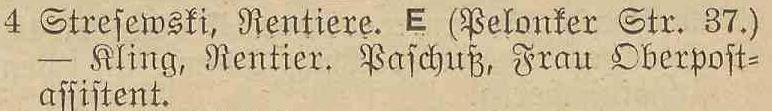 4 Streſewski, Rentiere. E (Pelonker Str. 37.)
— Kling, Rentier. Paſchuß, Frau Oberpoſt⸗
aſſiſtent.